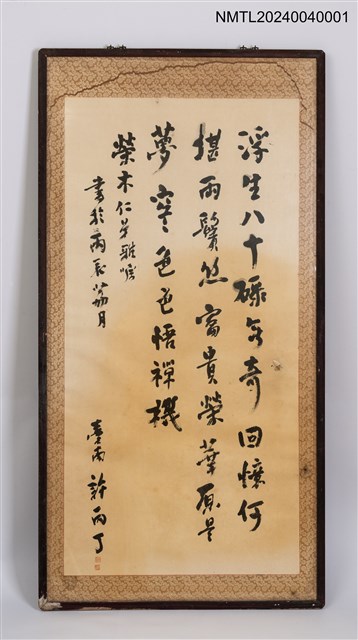 NMTL20240040001
浮生八十碌無奇回憶何
堪兩鬢絲富貴榮華原是
夢空空色色悟禪機
榮木仁弟雅囑
書於丙辰荔月
臺南許丙丁